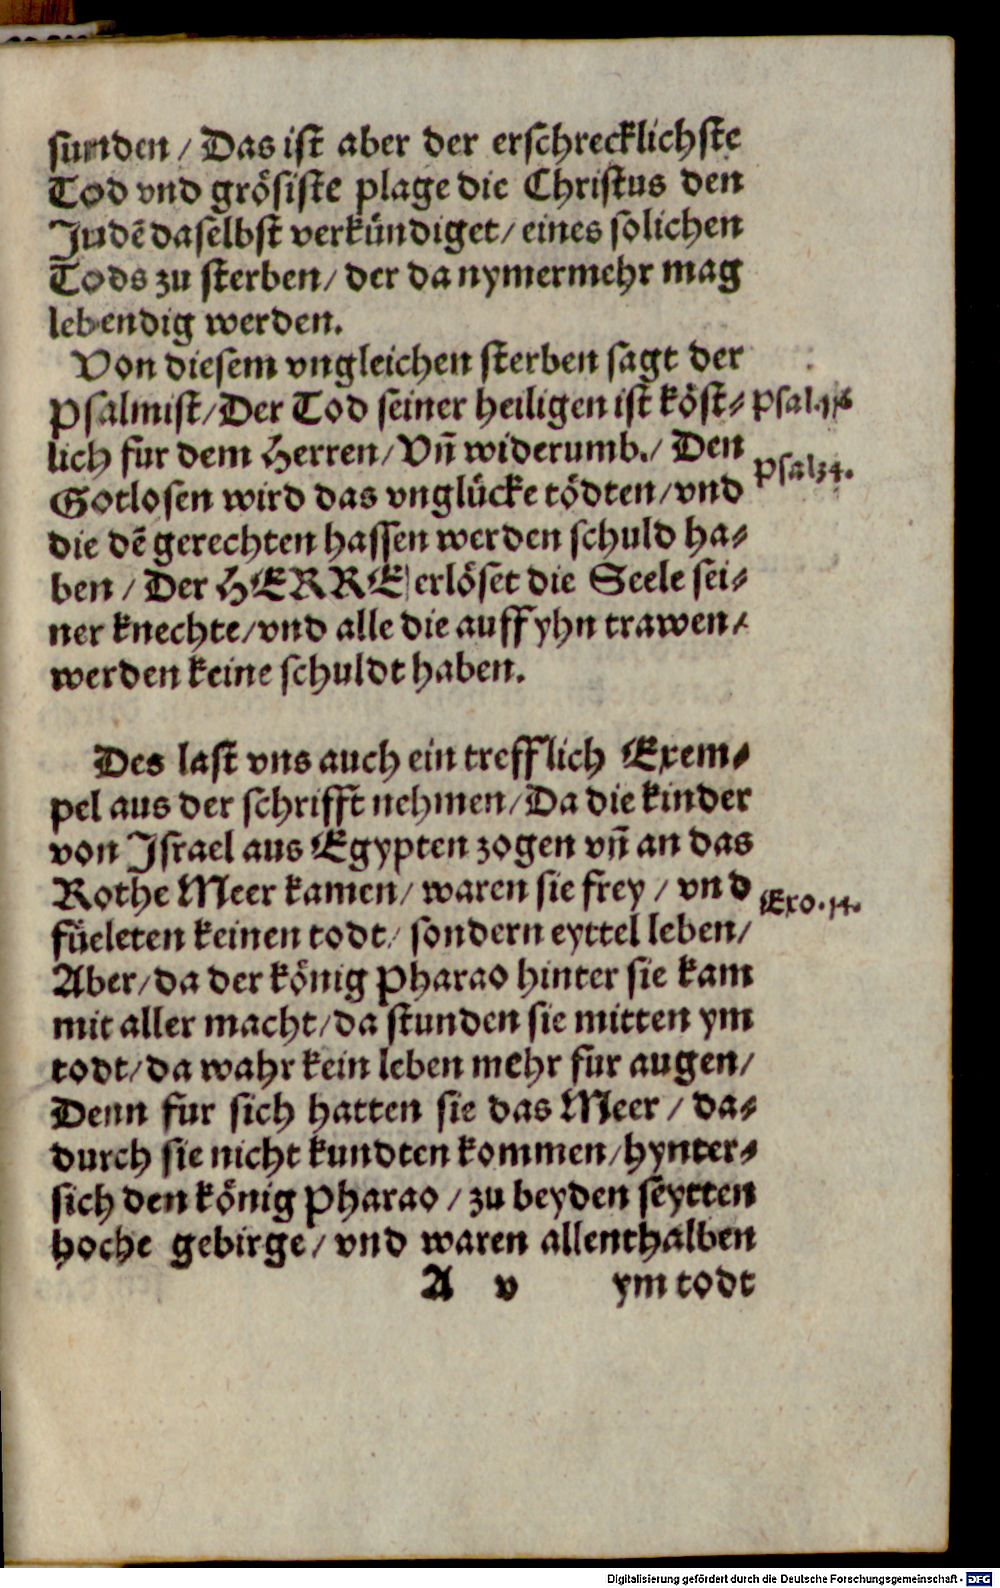 sunden / Das ist aber der erschrecklichste
Tod vnd grösiste plage die Christus den
Judē daselbst verkündiget / eines solichen
Tods zu sterben / der da nymermehr mag
lebendig werden.
Von diesem vngleichen sterben sagt der
Psalmist / Der Tod seiner heiligen ist köst-
lich fur dem Herren / Vn̄ widerumb. / Den
Psal34.
Gotlosen wird das vnglücke tödten / vnd
die dē gerechten hassen werden schuld ha-
ben / Der HERRE erlöset die Seele sei-
ner knechte / vnd alle die auff yhn trawen /
werden keine schuldt haben.
Des last vns auch ein trefflich Exem-
pel aus der schrifft nehmen / Da die kinder
von Israel aus Egypten zogen vn̄ an das
Rothe Meer kamen / waren sie frey / vnd
Exo.14.
füeleten keinen todt / sondern eyttel leben /
Aber / da der könig Pharao hinter sie kam
mit aller macht / da stunden sie mitten ym
todt / da wahr kein leben mehr fur augen /
Denn fur sich hatten sie das Meer / da-
durch sie nicht kundten kommen / hynter-
sich den könig Pharao / zu beyden seytten
hoche gebirge / vnd waren allenthalben
A v ym todt
Digitalisierung gefördert durch die Deutsche Forschungsgemeinschaft - DFG